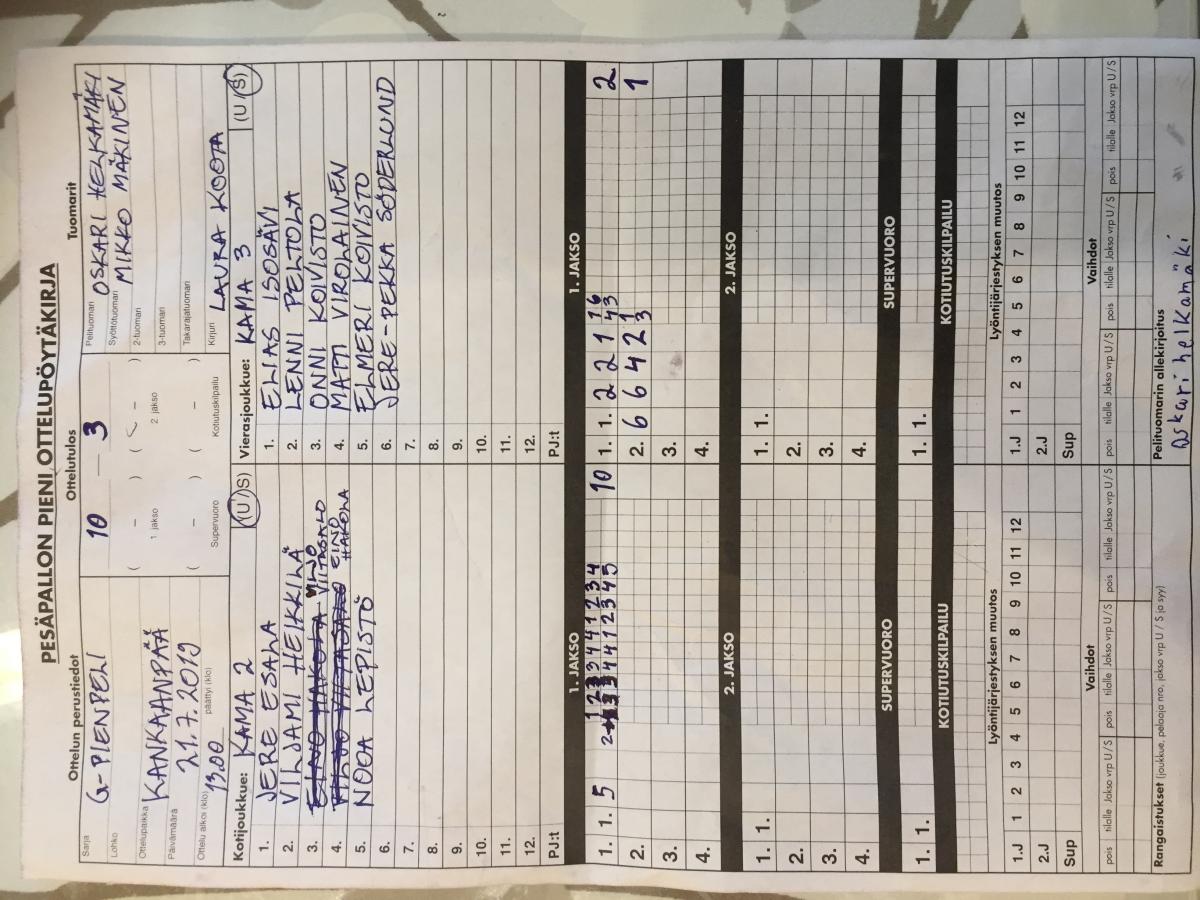 PESÄPALLON PIENI OTTELUPÖYTÄKIRJA
Ottelun perustiedot
Ottelutulos
Tuomarit
Sarja G-PIENPELI
Lohko
Ottelupaikka KANKAANPÄÄ
Päivämäärä 21.7.2019
Ottelu alkoi (klo) 13.00 päättyi (klo)
10 – 3
( – ) ( – )
1. jakso 2. jakso
( – ) ( – )
Supervuoro Kotiutuskilpailu
Pelituomari OSKARI HELKAMÄKI
Syöttötuomari MIKKO MÄKINEN
2-tuomari
3-tuomari
Takarajatuomari
Kirjuri LAURA KOOTA
Kotijoukkue: KAMA 2 (U/S)
1. JERE ESALA
2. VILJAMI HEIKKILÄ
3. EINO HAKOLA VILJO VIITASALO
4. VILJO VIITASALO EINO HAKOLA
5. NOOA LEPISTÖ
6.
7.
8.
9.
10.
11.
12.
PJ:t
Vierasjoukkue: KAMA 3 (U/S)
1. ELIAS ISOSÄVI
2. LENNI PELTOLA
3. ONNI KOIVISTO
4. MATTI VIROLAINEN
5. ELMERI KOIVISTO
6. JERE-PEKKA SÖDERLUND
7.
8.
9.
10.
11.
12.
PJ:t
1. JAKSO
1. 1. 5 10
2.
3.
4.
1. JAKSO
1. 1. 2 2 1 2
2. 6 6 4 2 1
3.
4.
2. JAKSO
1. 1.
2.
3.
4.
2. JAKSO
1. 1.
2.
3.
4.
SUPERVUORO
1. 1.
SUPERVUORO
1. 1.
KOTIUTUSKILPAILU
KOTIUTUSKILPAILU
Lyöntijärjestyksen muutos
1.J 1 2 3 4 5 6 7 8 9 10 11 12
2.J
Sup
Lyöntijärjestyksen muutos
1.J 1 2 3 4 5 6 7 8 9 10 11 12
2.J
Sup
Vaihdot
pois tilalle Jakso vrp U/S pois tilalle Jakso vrp U/S pois tilalle Jakso vrp U/S
Vaihdot
pois tilalle Jakso vrp U/S pois tilalle Jakso vrp U/S pois tilalle Jakso vrp U/S
Rangaistukset (joukkue, pelaaja nro, jakso vrp U / S ja syy)
Pelituomarin allekirjoitus
oskari helkamäki